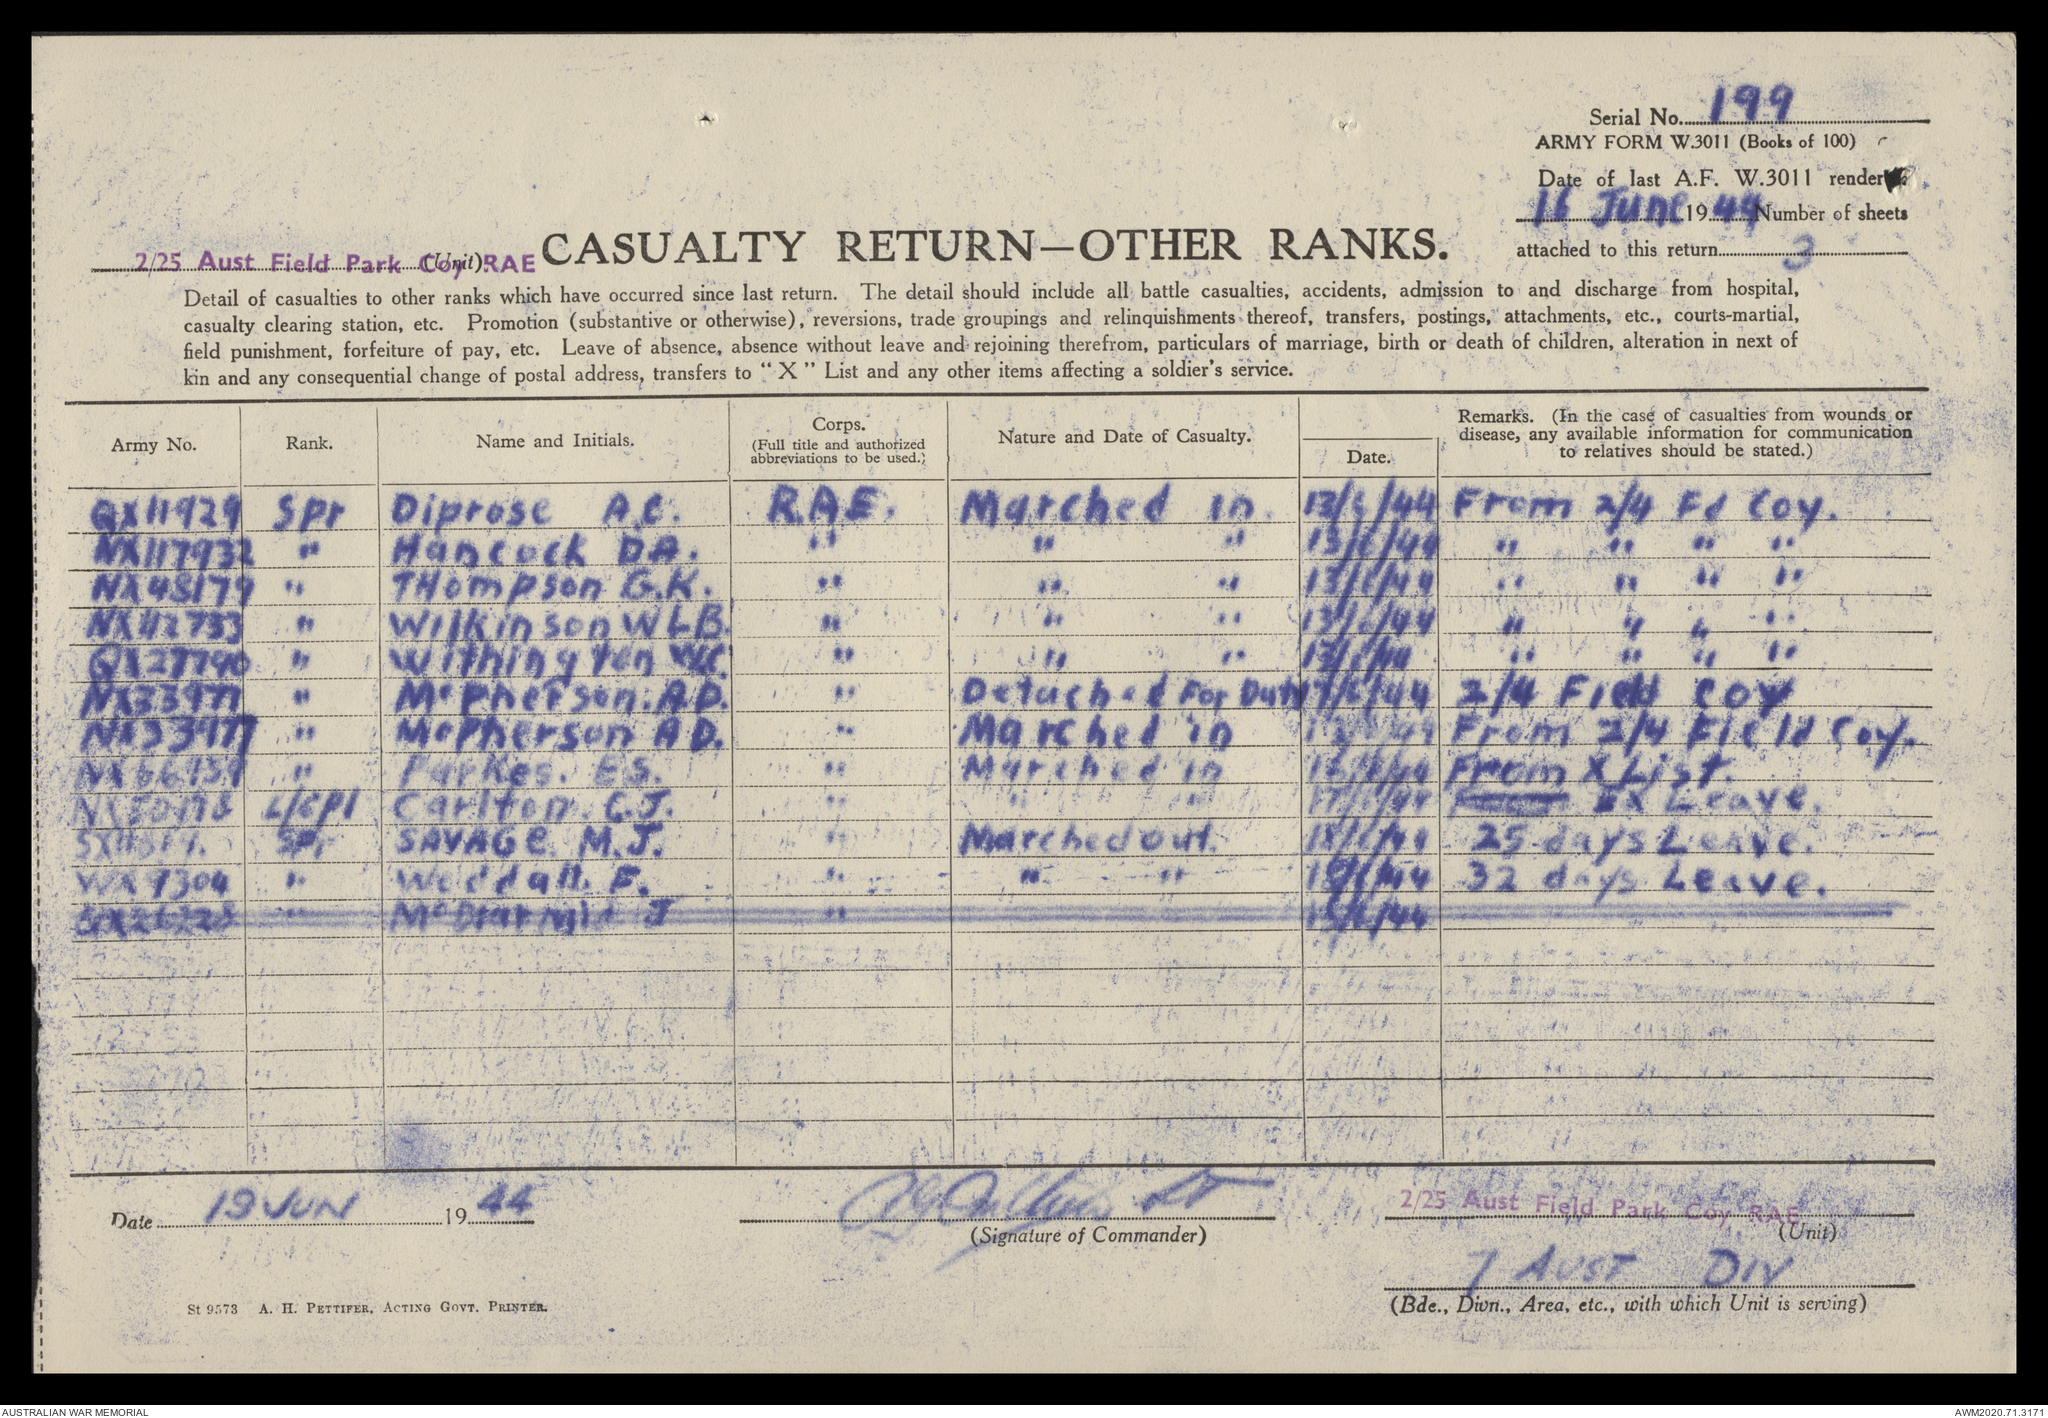 Serial No. 199
ARMY FORM W.3011 (Books of 100)
Date of last A.F. W.3011 render
16 June 1944 Number of sheets
attached to this return 3
2/25 Aust Field Park Coy RAE (Unit).
CASUALTY RETURN—OTHER RANKS.
Detail of casualties to other ranks which have occurred since last return. The detail should include all battle casualties, accidents, admission to and discharge from hospital,
casualty clearing station, etc. Promotion (substantive or otherwise), reversions, trade groupings and relinquishments thereof, transfers, postings, attachments, etc., courts-martial,
field punishment, forfeiture of pay, etc. Leave of absence, absence without leave and rejoining therefrom, particulars of marriage, birth or death of children, alteration in next of
kin and any consequential change of postal address, transfers to "X" List and any other items affecting a soldier's service.
Army No. Rank. Name and Initials. Corps. (Full title and authorized abbreviations to be used.) Nature and Date of Casualty. Date. Remarks. (In the case of casualties from wounds or disease, any available information for communication to relatives should be stated.)
QX11929 Spr Diprose A.C. R.A.E. Marched in. 13/6/44 From 2/4 Fd Coy.
NX117932 " Hancock D.A. " " " 13/6/44 " " " "
NX48179 " THompson G.K. " " " 13/6/44 " " " "
NX112733 " Wilkinson WLB. " " " 13/6/44 " " " "
QX27790 " Withington W.C. " " " 13/6/44 " " " "
NX33977 " McPherson. A.D. " Detached For Duty 17/6/44 2/4 Field Coy
NX33977 " McPherson A D. " Marched in From 2/4 Field Coy.
" Parkes. E.S. " Marched in From X List.
L/Cpl Carlton. C.J. " " " 17/6/44 EX Leave.
Spr SAVAGE. M.J. " Marched out. 18/6/44 25 days Leave.
WX9304 " Weddall. F. " " " 32 days Leave.
" McDiarmid J "
Date 19 JUN 1944
(Signature of Commander)
2/25 Aust Field Park Coy RAE
(Unit)
7 AUST DIV
(Bde., Divn., Area, etc., with which Unit is serving)
St 9573 A. H. PETTIFER, ACTING GOVT. PRINTER.
AUSTRALIAN WAR MEMORIAL
AWM2020.71.3171